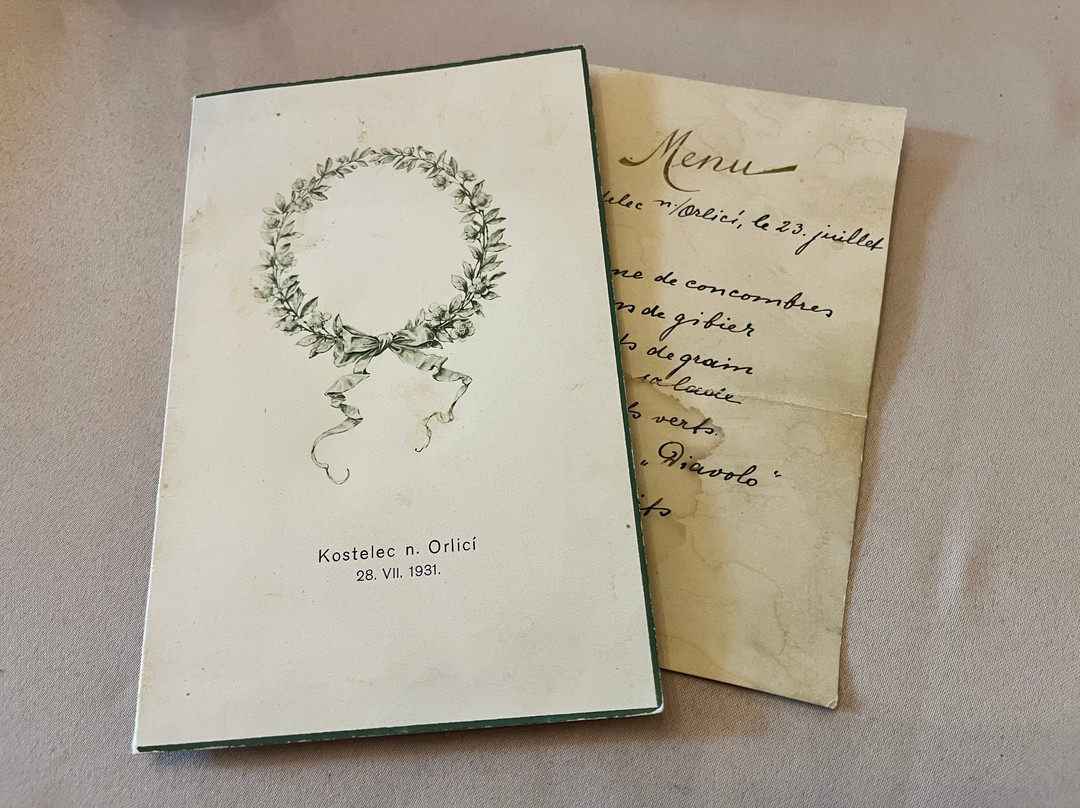 Kostelec n. Orlicí
28. VII. 1931.
Menu
telec n/Orlicí, le 23. juillet
ne de concombres
ns de gibier
ts de grain
salade
ts verts.
„ Diavolo “
its